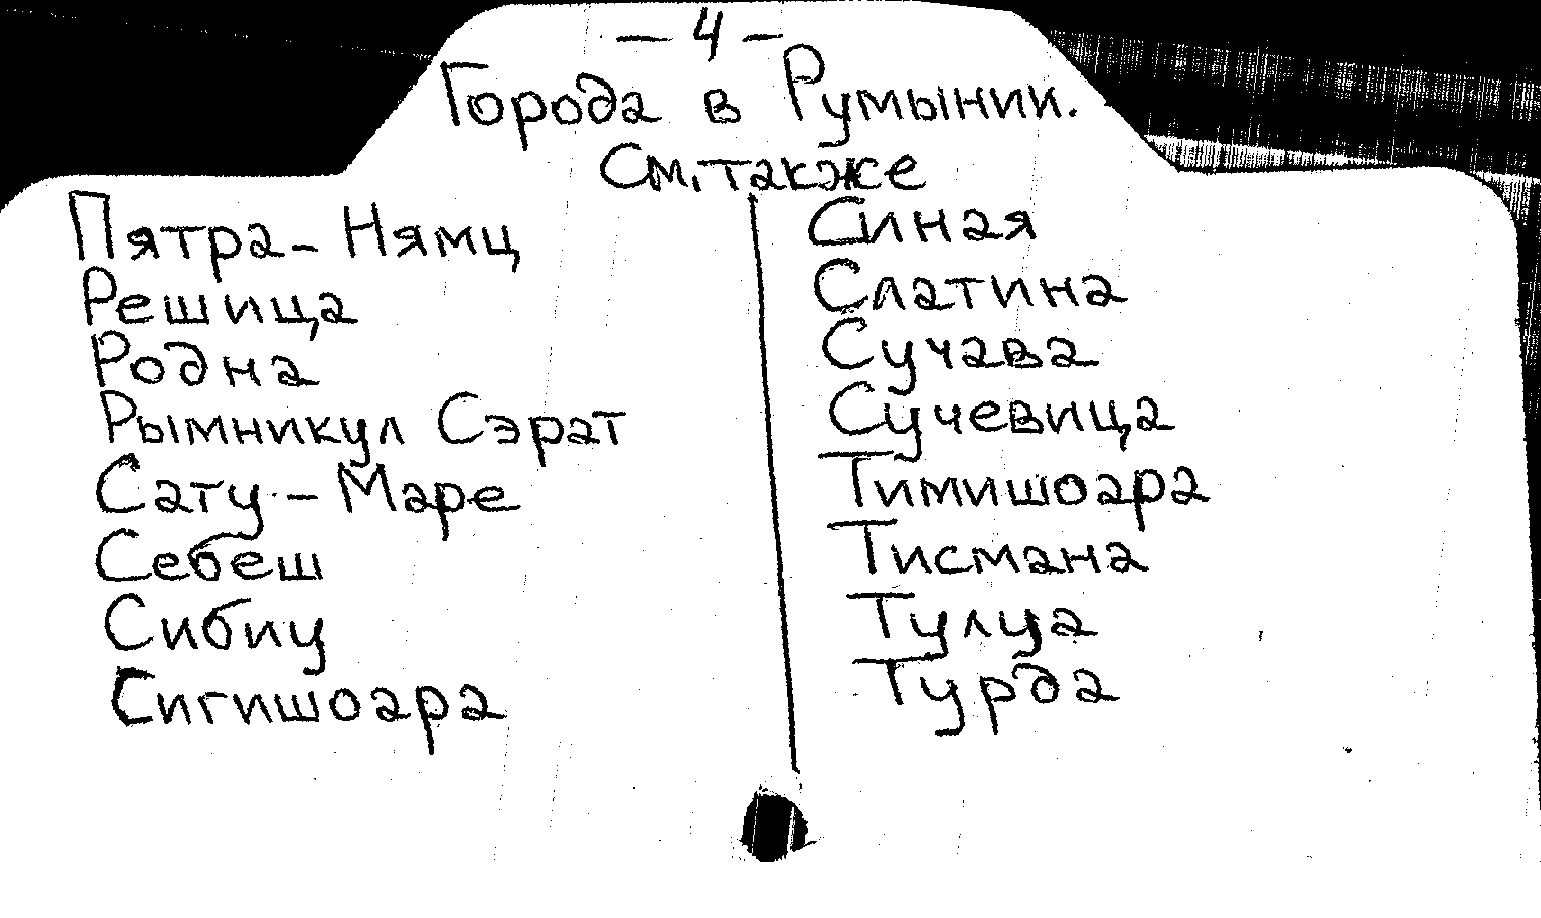 — 4 —
Города в Румынии.
См. также
Пятра – Нямц
Решица
Родна
Рымникул Сэрат
Сату – Маре
Себеш
Сибиу
Сигишоара
Синая
Слатина
Сучава
Сучевица
Тимишоара
Тисмана
Тулуа
Турда